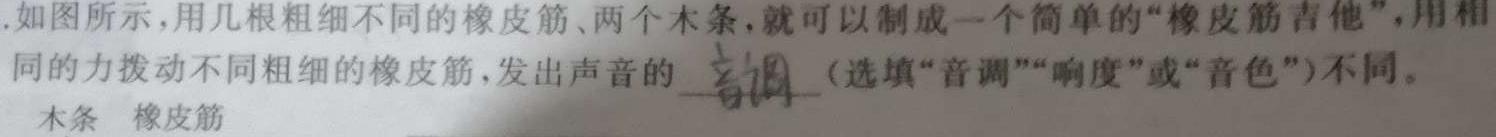 .如图所示,用几根粗细不同的橡皮筋、两个木条,就可以制成一个简单的“橡皮筋吉他”,用相
同的力拨动不同粗细的橡皮筋,发出声音的 音调 (选填“音调”“响度”或“音色”)不同。
木条 橡皮筋